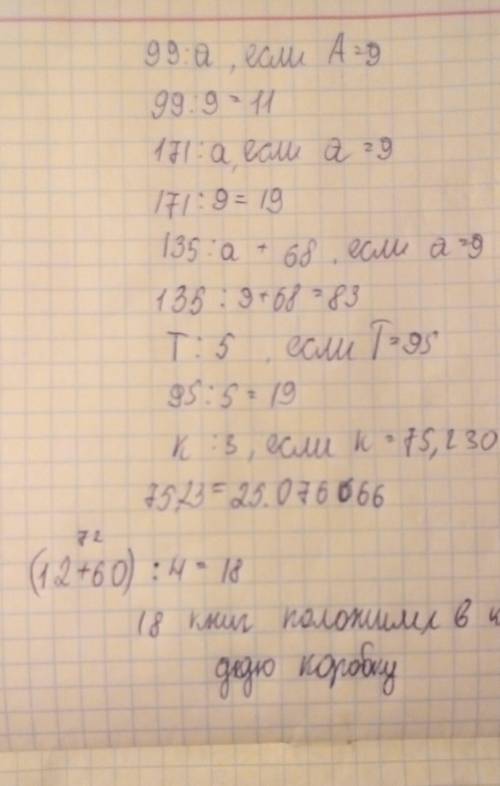 99:a, если A=9
99:9=11
171:a, если a=9
171:9=19
135:a + 68, если a=9
135:9+68=83
T:5, если T=95
95:5=19
к:3, если к=75,230
=25.076666
72
(12+60):4=18
18 книг в
коробку